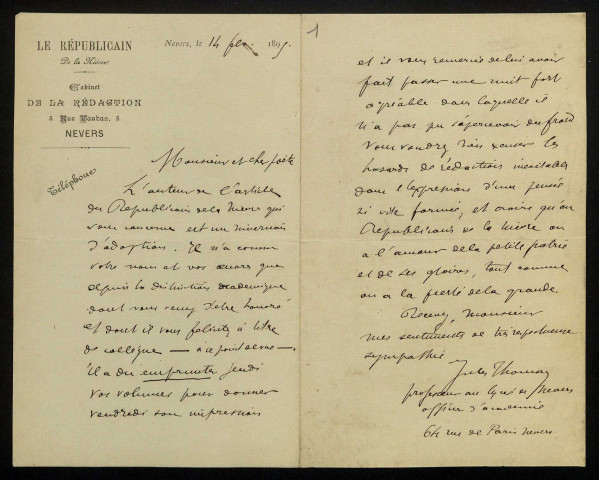 LE RÉPUBLICAIN
De la Nièvre
Cabinet
DE LA RÉDACTION
5 Rue Vauban, 5
NEVERS
Téléphone
Nevers, le 14 fev. 1895
Monsieur et cher poète
L'auteur de l'article
du Republicain de la Nievre qui
vous concerne est un nivernais
d'adoption. Il n'a connu
votre nom et vos œuvres que
depuis la distinction academique
dont vous venez d'etre honoré
et dont il vous felicite à titre
de collègue —
il a du emprunter jeudi
vos volumes pour donner
vendredi son impression
1
et il vous remercie de lui avoir
fait passer une nuit fort
agréable dans laquelle il
n'a pas pu s'apercevoir du froid
Vous voudrez bien excuser les
hasards de rédaction inévitables
dans l'expression d'une pensée
si vite formée, et croire qu'au
Republicain de la Nievre on
a l'amour de la petite patrie
et de ses gloires, tout comme
on a la fierté de la grande.
Recevez, Monsieur
mes sentiments de très respectueuse
sympathie
Jules Thomas
professeur au lycée de Nevers
officier d'academie
64 rue de Paris Nevers